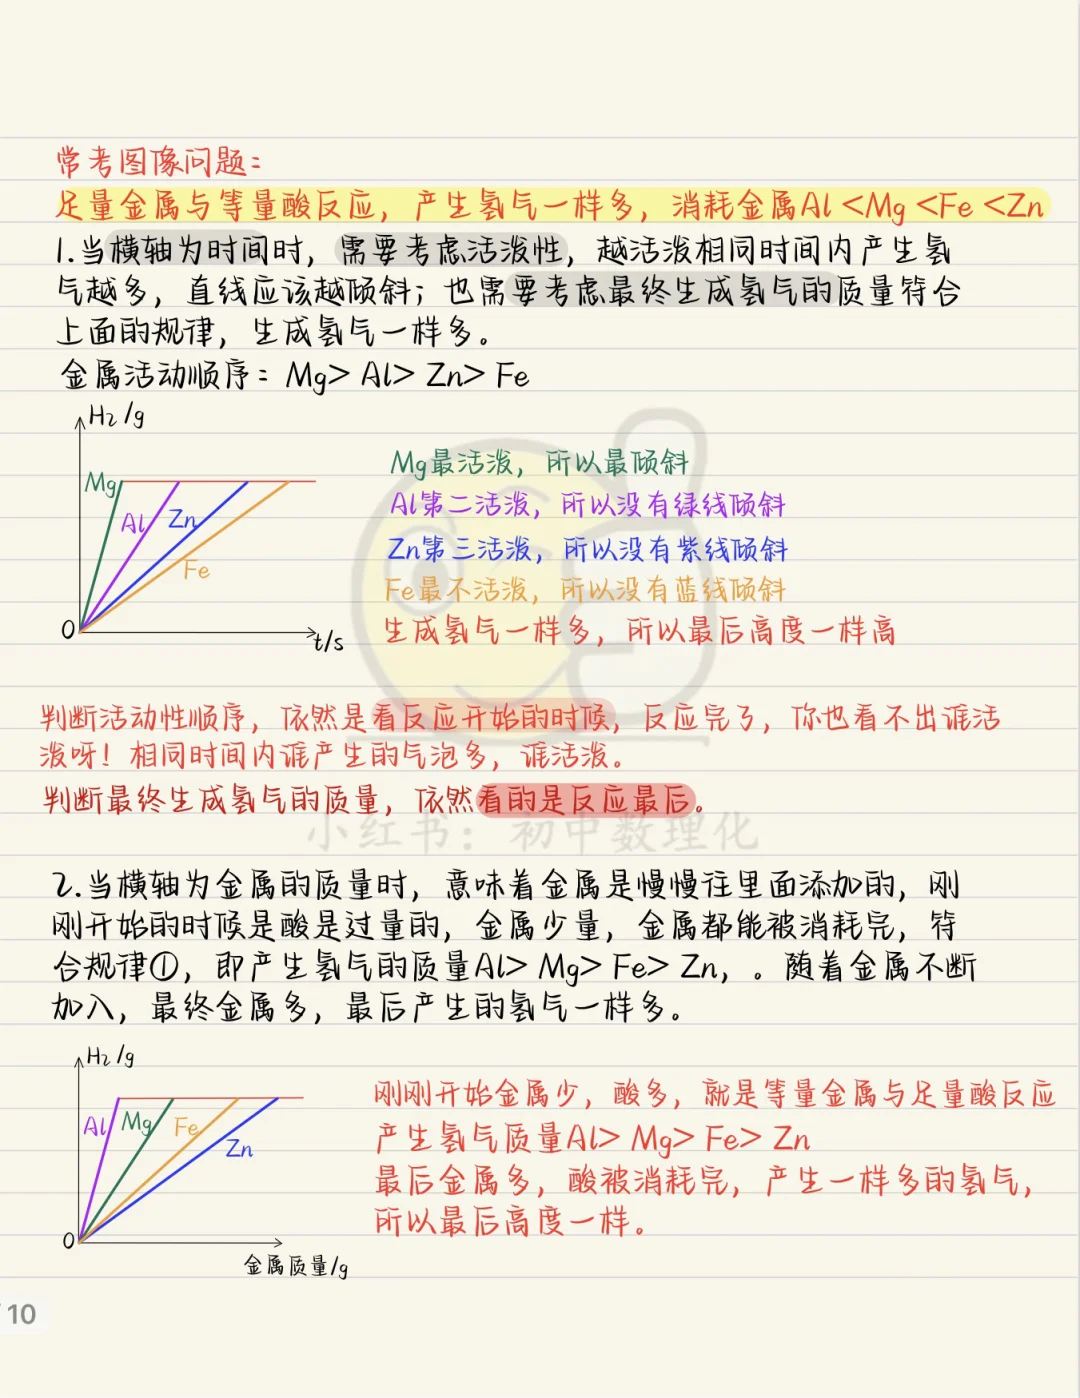 常考图像问题:
足量金属与等量酸反应，产生氢气一样多，消耗金属Al<Mg<Fe<Zn
1.当横轴为时间时，需要考虑活泼性，越活泼相同时间内产生氢
气越多，直线应该越倾斜；也需要考虑最终生成氢气的质量符合
上面的规律，生成氢气一样多。
金属活动顺序：Mg> Al> Zn> Fe
H₂/g
Mg
Al
Zn
Fe
0
t/s
Mg最活泼，所以最倾斜
Al第二活泼，所以没有绿线倾斜
Zn第三活泼，所以没有紫线倾斜
Fe最不活泼，所以没有蓝线倾斜
生成氢气一样多，所以最后高度一样高
判断活动性顺序，依然是看反应开始的时候，反应完了，你也看不出谁活
泼呀！相同时间内谁产生的气泡多，谁活泼。
判断最终生成氢气的质量，依然看的是反应最后。
小红书：初中数理化
2.当横轴为金属的质量时，意味着金属是慢慢往里面添加的，刚
刚开始的时候是酸是过量的，金属少量，金属都能被消耗完，符
合规律①，即产生氢气的质量Al> Mg> Fe> Zn，。随着金属不断
加入，最终金属多，最后产生的氢气一样多。
H₂/g
Al
Mg
Fe
Zn
0
金属质量/g
刚刚开始金属少，酸多，就是等量金属与足量酸反应
产生氢气质量Al> Mg> Fe> Zn
最后金属多，酸被消耗完，产生一样多的氢气，
所以最后高度一样。
/10